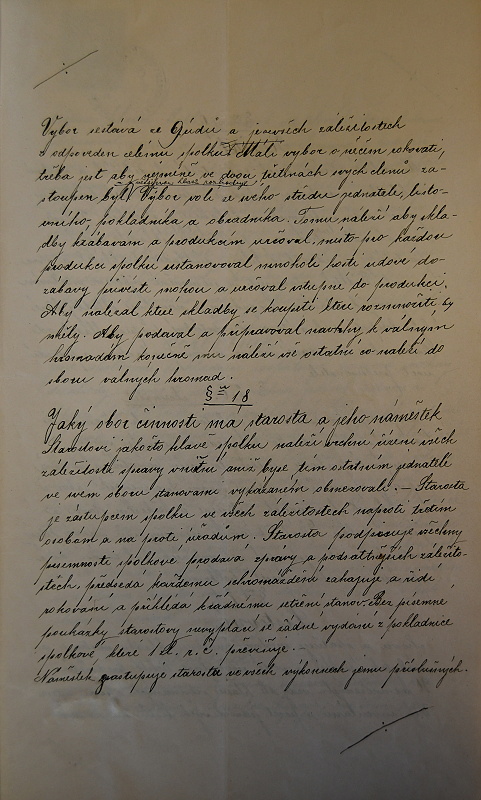 Výbor sestává ze 9 údů a je ve všech záležitostech
zodpověden celému spolku. Máli výbor o něčem rokovati,
třeba jest aby nejméně ve dvou třetinách svých členů za-
stoupen byl. Výbor volí ze svého středu jednatele, listo-
vního, pokladníka a obřadníka. Tomu náleží aby skla-
dby k zábavám a produkcím určoval, místo pro každou
produkci spolku ustanovoval mnoholi hostí údové do
zábavy přivésti mohou a určoval vstupné do produkcí.
Aby nalézal které skladby se koupiti které rozmnožiti by
měly. Aby podával a připravoval návrhy k válným
hromadám konečně mu náleží vše ostatní co nenáleží do
oboru válných hromad.
§ 18
Jaký obor činnosti má starosta a jeho náměstek
Starostovi jakožto hlavě spolku náleží vrchní řízení všech
záležitostí správy vnitřní aniž byse tím ostatním jednatelé
ve svém oboru stanovami vykázaném obmezovali. – Starosta
je zástupcem spolku ve všech záležitostech naproti třetím
osobám a na proti úřadům. Starosta podpisuje všechny
písemnosti spolkové podává zprávy o podstatnějších záležito-
stech, předsedá každému shromáždění zahajuje a řídí
rokování a přihlédá k řádnému šetření stanov. Bez písemné
poukázky starostovy nevyplácí se žádné vydání z pokladnice
spolkové, které 1 zl. r. č. převyšuje. –
Náměstek zastupuje starostu ve všech výkonech jemu příslušných.